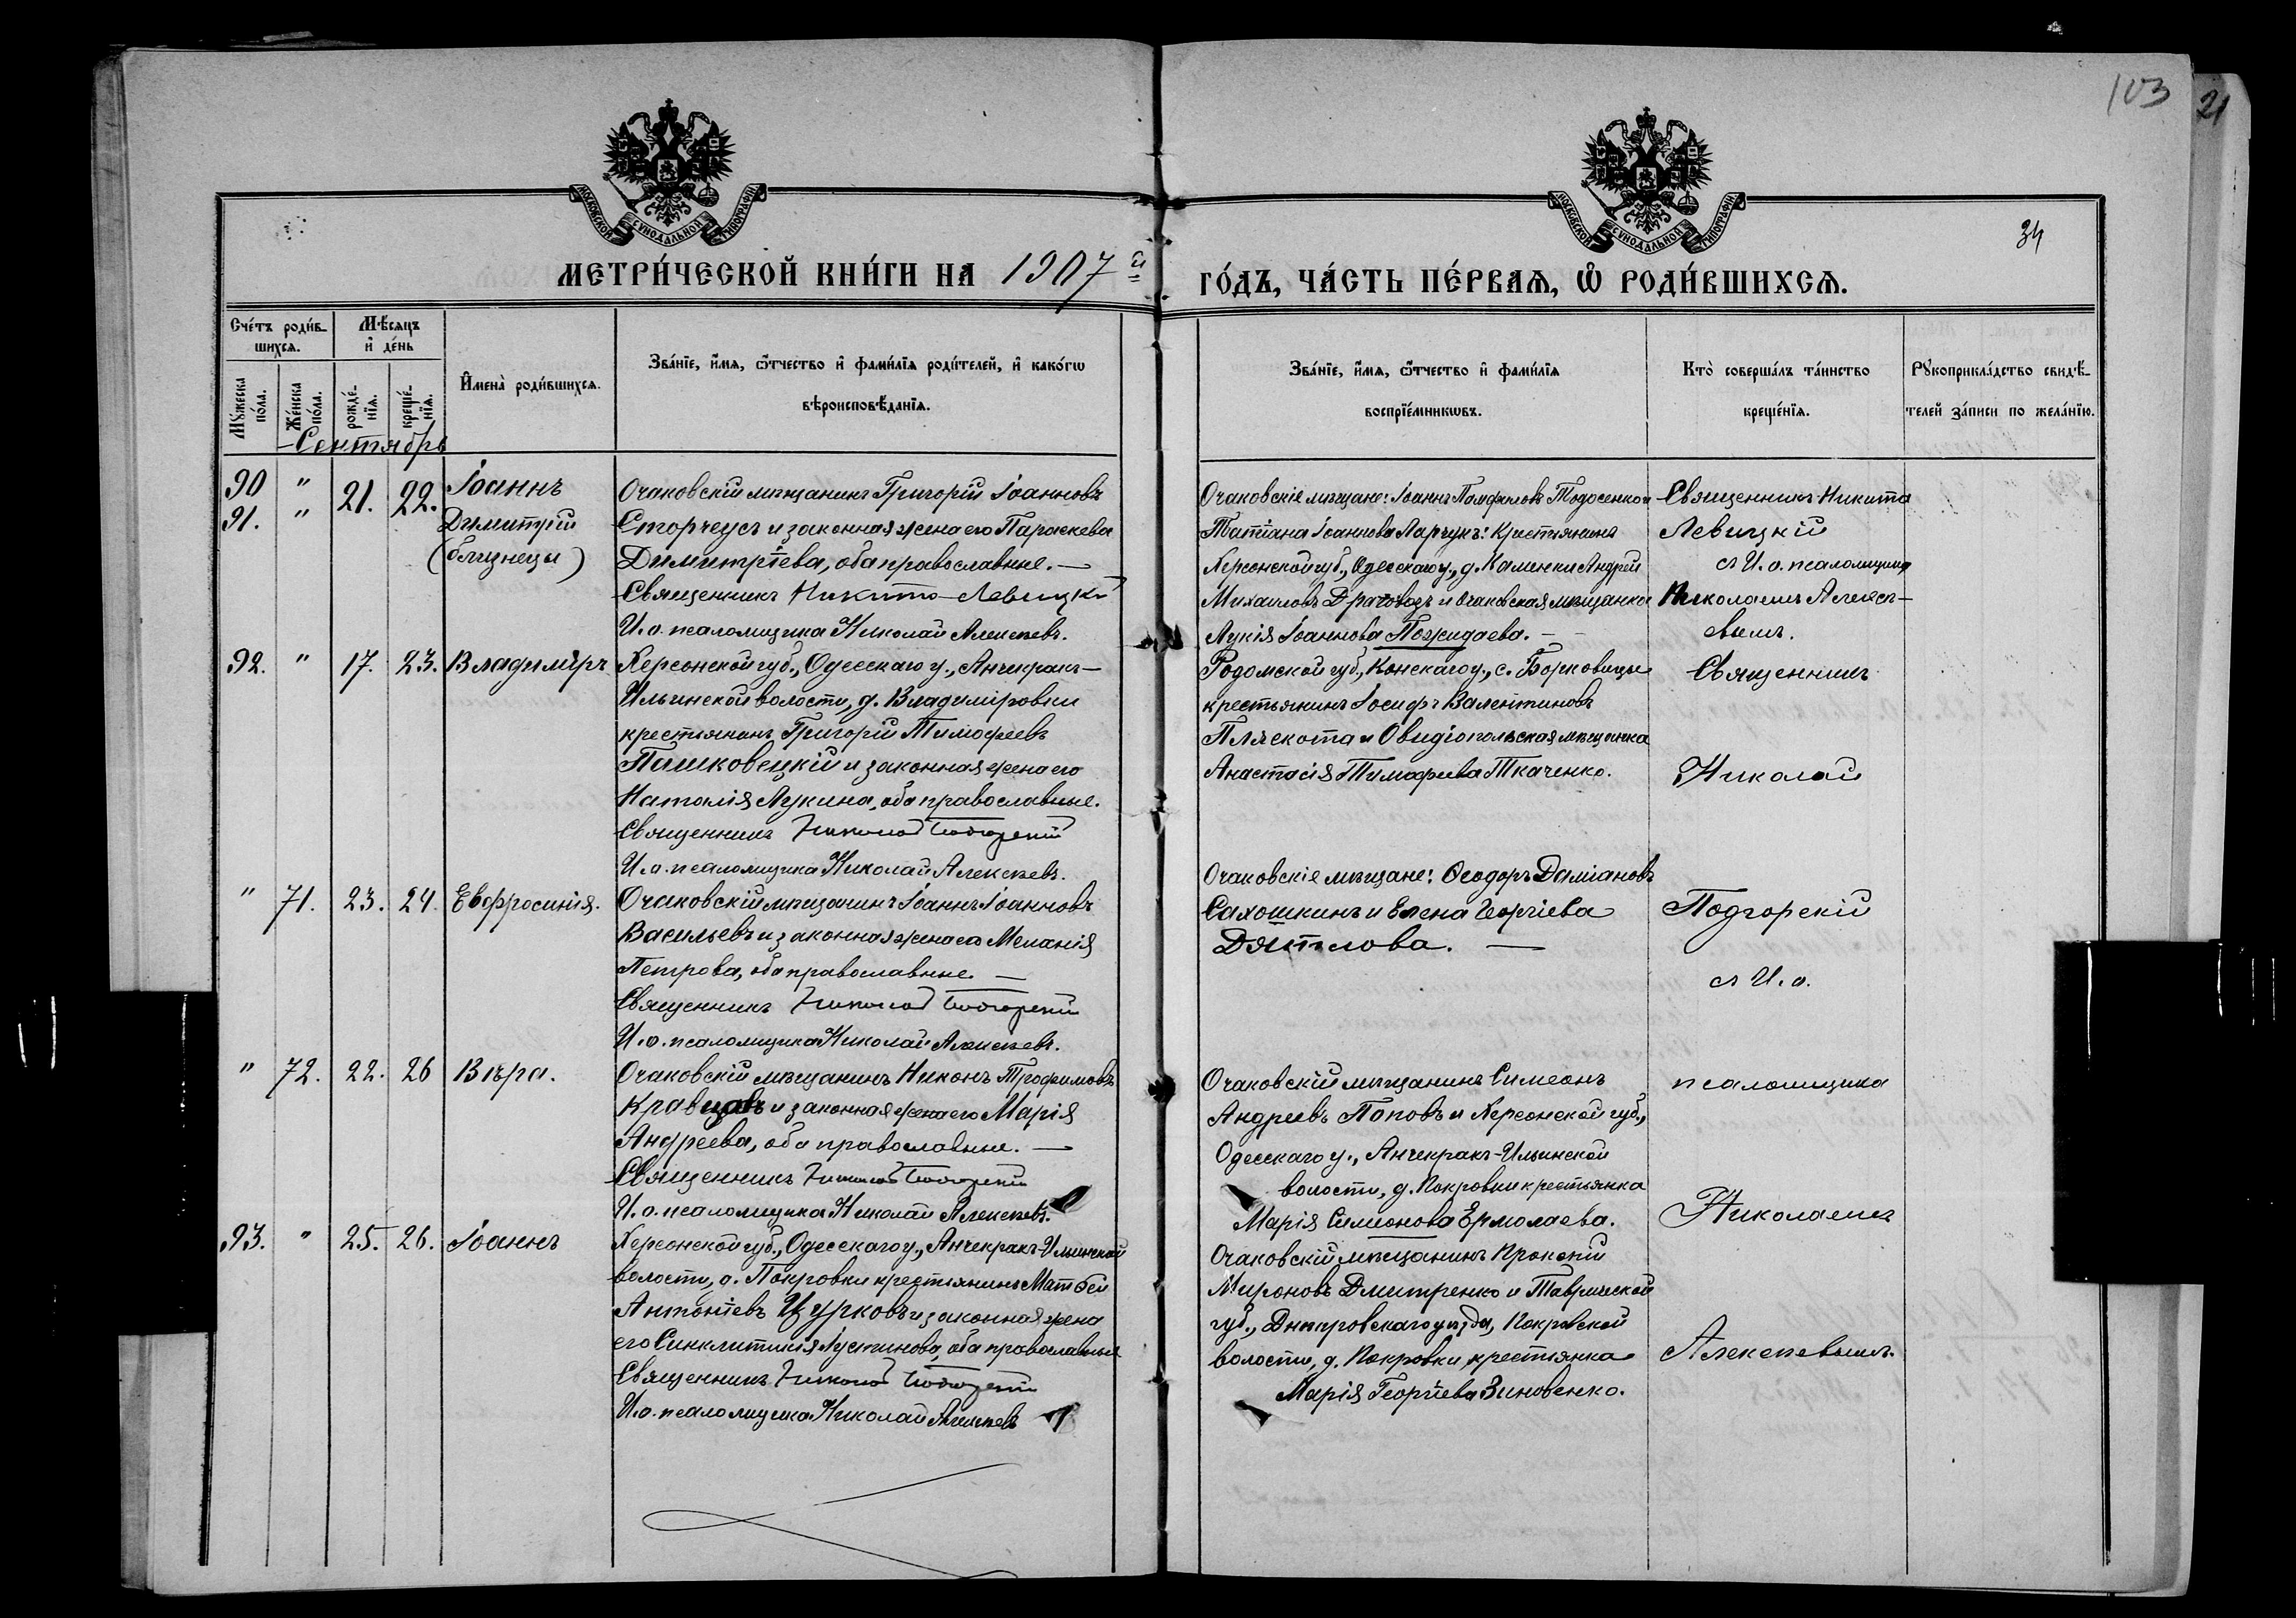 103
21
34
МОСКОВСКОЙ СѴНОДАЛЬНОЙ ТИПОГРАФІИ
МОСКОВСКОЙ СѴНОДАЛЬНОЙ ТИПОГРАФІИ
МЕТРИ́ЧЕСКОЙ КНИ́ГИ НА 1907й
ГО́ДЪ, ЧА́СТЬ ПЕ́РВАѦ, Ѡ҆ РОДИ́ВШИХСѦ.
Сче́тъ роди́в-
шихсѧ.
Мѣ́сѧцъ
и҆ де́нь
Мꙋ́жеска
по́ла.
Же́нска
по́ла.
рожде́-
нїѧ.
креще́-
нїѧ.
И҆мена̀ роди́вшихсѧ.
Зва́нїе, и҆́мѧ, ѻ҆́тчество и҆ фами́лїѧ роди́телей, и҆ како́гѡ
вѣроисповѣ́данїѧ.
Зва́нїе, и҆́мѧ, ѻ҆́тчество и҆ фами́лїѧ
воспрїе́мникѡвъ.
Кто̀ соверша́лъ та́инство
креще́нїѧ.
Рꙋкоприкла́дство свидѣ́-
телей за́писи по жела́нїю.
Сентябрь
90 " 21. 22. Іоаннъ
91. " Димитрій
(близнецы)
Очаковскій мѣщанинъ Григорій Іоанновъ
Сторчеусъ и законная жена его Параскева
Димитріева, оба православные. —
Священникъ Никита Левицкій
И. о. псаломщика Николай Алексѣевъ.
Очаковскіе мѣщане: Іоаннъ Памфиловъ Тодосенко и
Татіана Іоаннова Ларчукъ: крестьянинъ
Херсонской губ., Одесскаго у., д. Каменки Андрей
Михаиловъ и Очаковская мѣщанка
Лукія Іоаннова Пожидаева. —
Священникъ Никита
Левицкій
съ И. о. псаломщика
Николаемъ Алексѣ-
евымъ.
92. " 17. 23. Владиміръ
Херсонской губ., Одесскаго у., Анчекракъ-
Ильинской волости, д. Владиміровки
крестьянинъ Григорій Тимофеевъ
Пашковецкій и законная жена его
Наталія Лукина, оба православные.
Священникъ Николай Подгорскій
И. о. псаломщика Николай Алексѣевъ.
Радомской губ., Конскаго у., с. Борковицы
крестьянинъ Іосифъ Валентиновъ
Пляскота и Овидіопольская мѣщанка
Анастасія Тимофеева Ткаченко.
Священникъ
Николай
" 71. 23. 24. Евфросинія.
Очаковскій мѣщанинъ Іоаннъ Іоанновъ
Васильевъ и законная жена его Меланія
Петрова, оба православные. —
Священникъ Николай Подгорскій
И. о. псаломщика Николай Алексѣевъ.
Очаковскіе мѣщане: Ѳеодоръ Даміановъ
Сахошкинъ и Елена Георгіева
Дятлова. —
Подгорскій
съ И. о.
" 72. 22. 26 Вѣра.
Очаковскій мѣщанинъ Никонъ Трофимовъ
Кравцовъ и законная жена его Марія
Андреева, оба православные. —
Священникъ Николай Подгорскій
И. о. псаломщика Николай Алексѣевъ.
Очаковскій мѣщанинъ Симеонъ
Андреевъ Поповъ и Херсонской губ.,
Одесскаго у., Анчекракъ-Ильинской
волости, д. Покровки крестьянка
Марія Симеонова Ермолаева.
псаломщика
Николаемъ
93. " 25. 26. Іоаннъ
Херсонской губ., Одесскаго у., Анчекракъ-Ильинской
волости, д. Покровки крестьянинъ Матѳей
Антоніевъ Цурковъ и законная жена
его Синклитикія Іустинова, оба православные
Священникъ Николай Подгорскій
И. о. псаломщика Николай Алексѣевъ
Очаковскій мѣщанинъ Прокопій
Мироновъ Дмитренко и Таврической
губ., Днѣпровскаго уѣзда, Покровской
волости, д. Покровки, крестьянка
Марія Георгіева Зиновенко.
Алексѣевымъ.